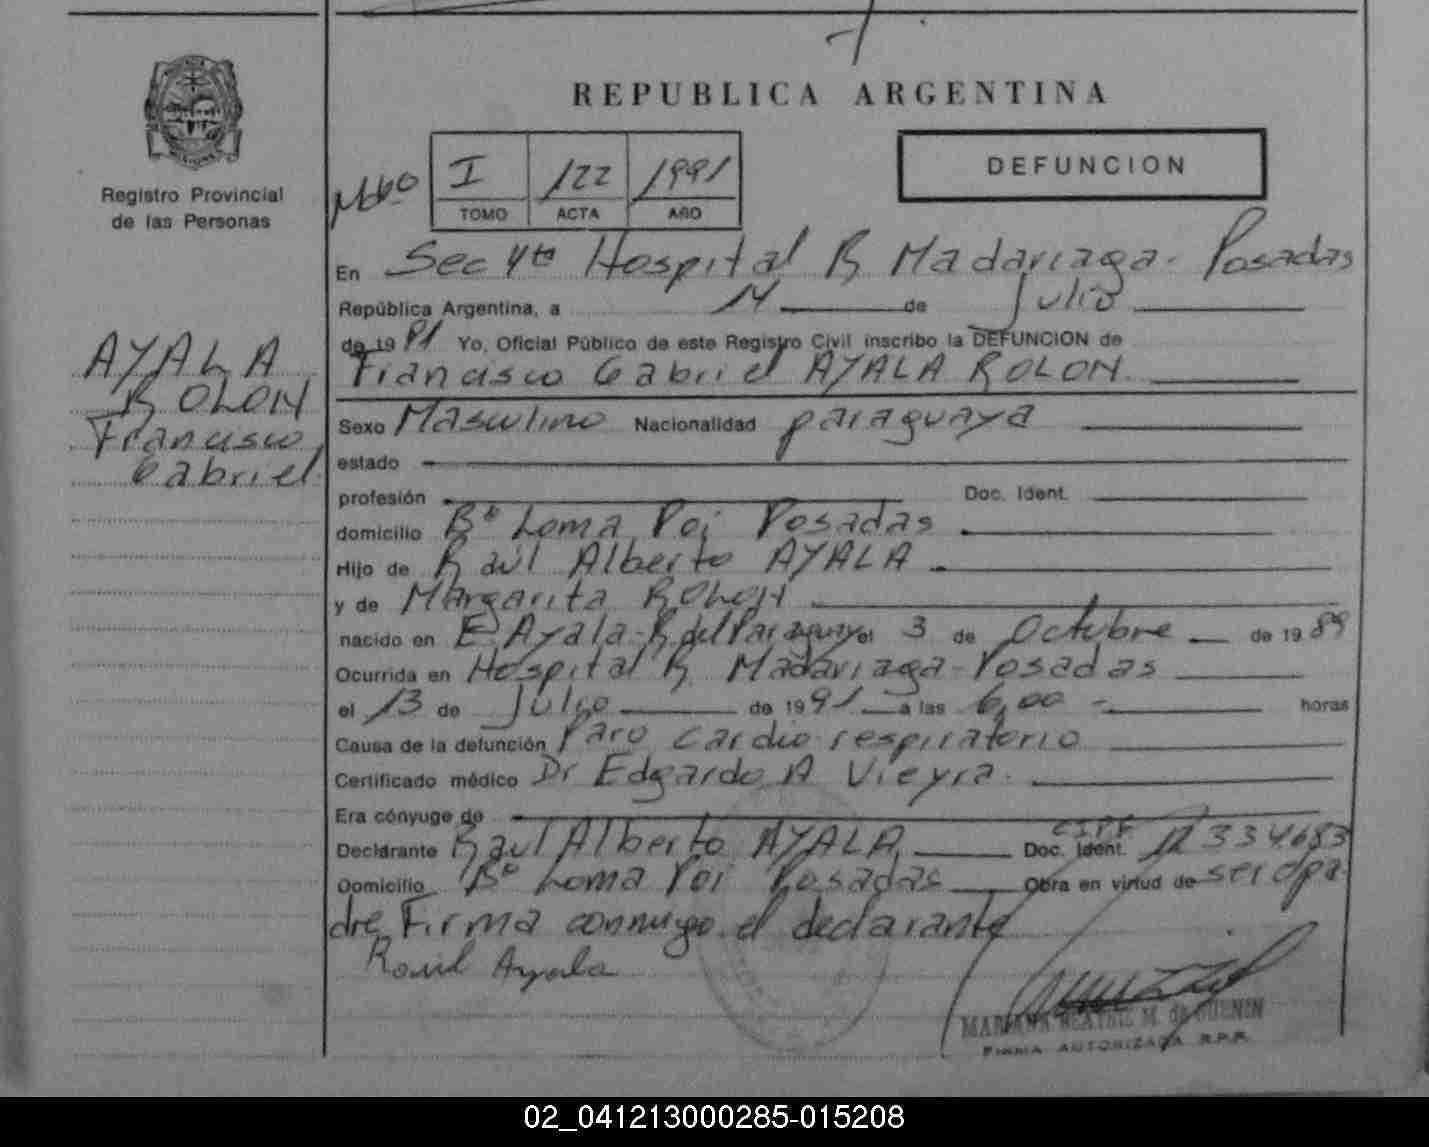 REPUBLICA ARGENTINA
DEFUNCION
Registro Provincial
de las Personas
I 122 1991
TOMO ACTA AÑO
En Sec 4ta Hospital R Madariaga - Posadas
República Argentina, a 14 de Julio
de 19 91 Yo, Oficial Público de este Registro Civil inscribo la DEFUNCION de
Francisco Gabriel AYALA ROLON
AYALA
ROLON
Francisco
Gabriel
Sexo Masculino Nacionalidad paraguaya
estado
profesión Doc. Ident.
domicilio Bº Loma Poi Posadas
Hijo de Raúl Alberto AYALA
y de Margarita ROLON
nacido en E. Ayala - R. del Paraguay el 3 de Octubre de 19 89
Ocurrida en Hospital R. Madariaga - Posadas
el 13 de Julio de 19 91 a las 6,00 - horas
Causa de la defunción Paro cardio respiratorio
Certificado médico Dr Edgardo A Vieyra.
Era cónyuge de
Declarante Raul Alberto AYALA Doc. Ident. 12 334683
Domicilio Bº Loma Poi Posadas Obra en virtud de ser el pa-
dre, Firma conmigo el declarante
Raul Ayala
MARIANA BEATRIZ M. de GUENIN
FIRMA AUTORIZADA R.P.P.
02_041213000285-015208